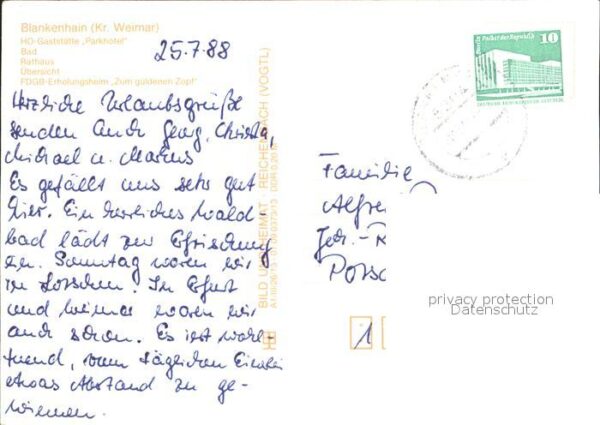 Blankenhain (Kr. Weimar)
HO-Gaststätte „Parkhotel"
Bad
Rathaus
Übersicht
FDGB-Erholungsheim „Zum güldenen Zopf"
25.7.88
Herzliche Urlaubsgrüße
senden Euch Georg, Christa,
Michael u. Markus
Es gefällt uns sehr gut
hier. Ein herrliches Wald-
bad lädt zur Erfrischung
ein. Sonntag waren wir
in
In Erfurt
und Weimar waren wir
auch schon. Es ist
vom täglichen Einerlei
etwas Abstand zu ge-
winnen.
BILD UND HEIMAT REICHENBACH (VOGTL)
Berlin, Palast der Republik
10
DEUTSCHE DEMOKRATISCHE REPUBLIK
Familie
Alfre
1
privacy protection
Datenschutz